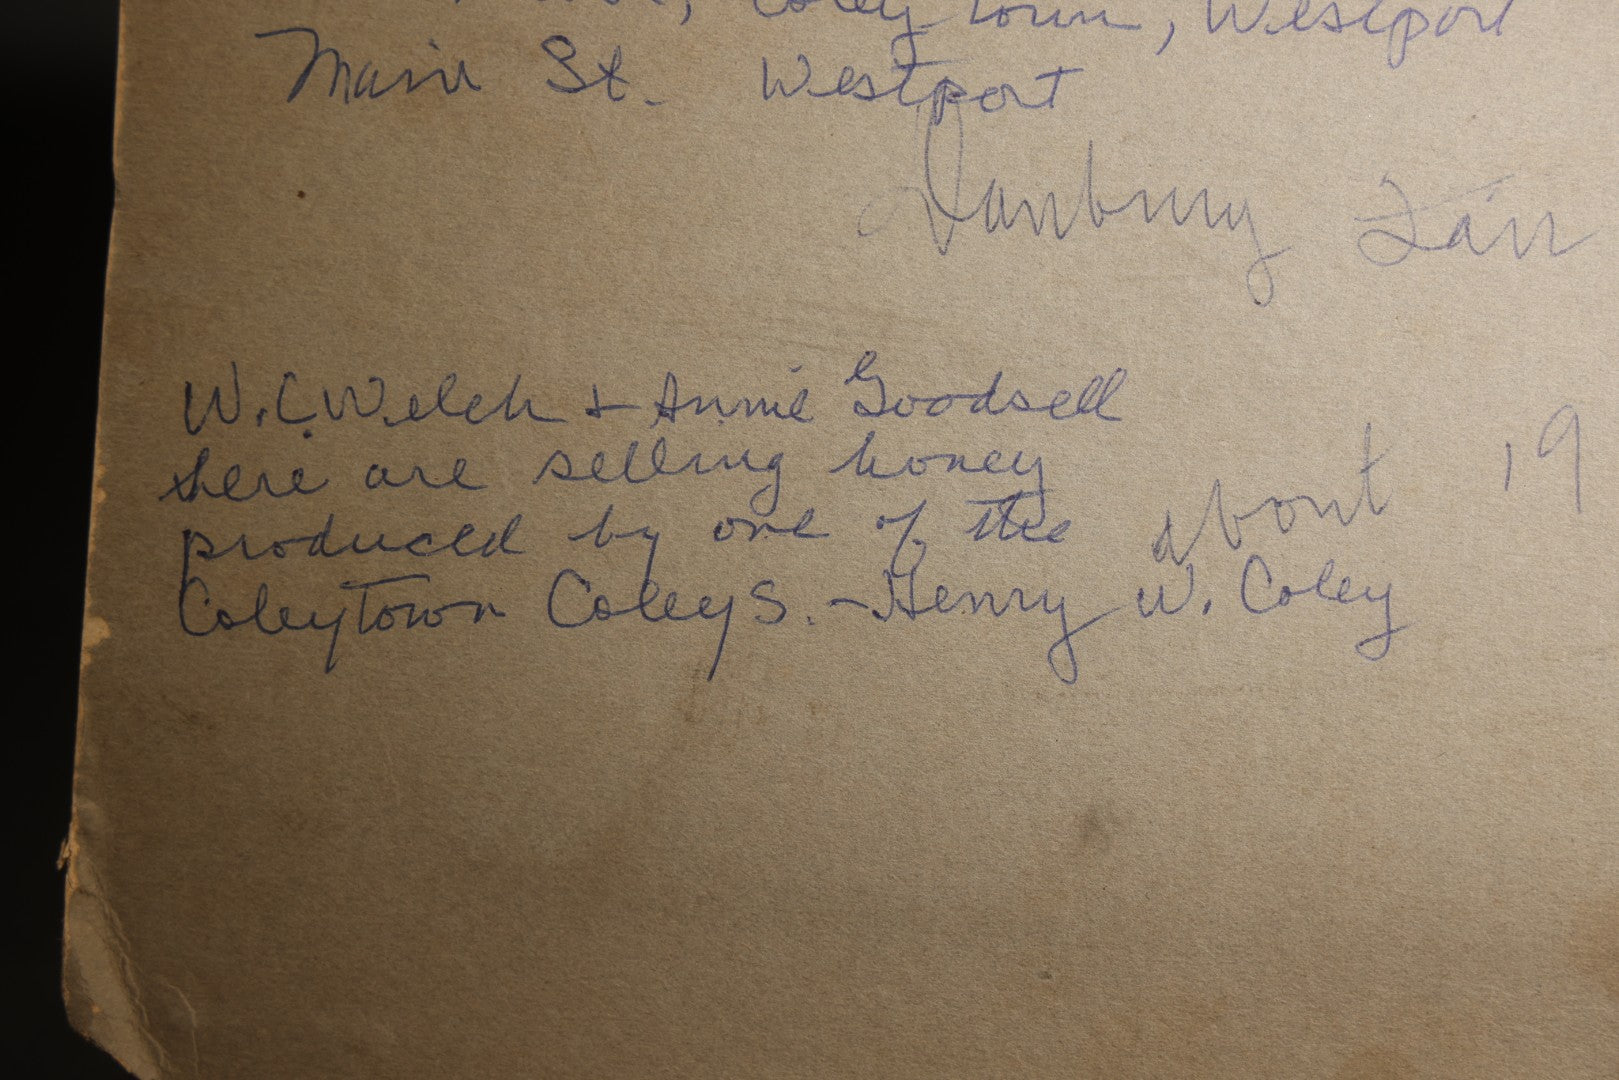 Coleytown, Westport
Main St. Westport
Danbury Fair
W. C. Welch & Annie Goodsell
here are selling honey
produced by one of the
Coleytown Coleys. - Henry W. Coley
about 19